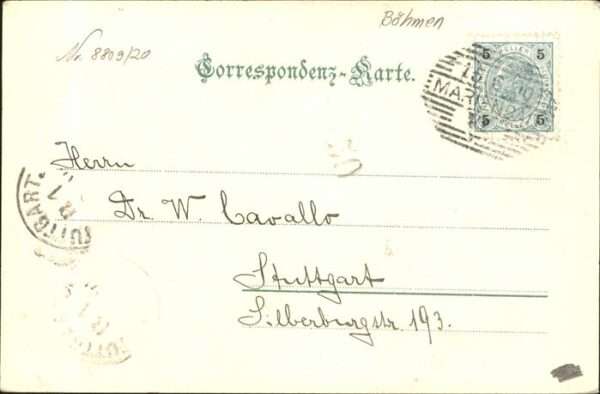 Böhmen
Nr. 8809/20
Correspondenz-Karte.
5 5
5 5
Herrn
Dr. W. Cavallo
Stuttgart
Silberburgstr. 193.